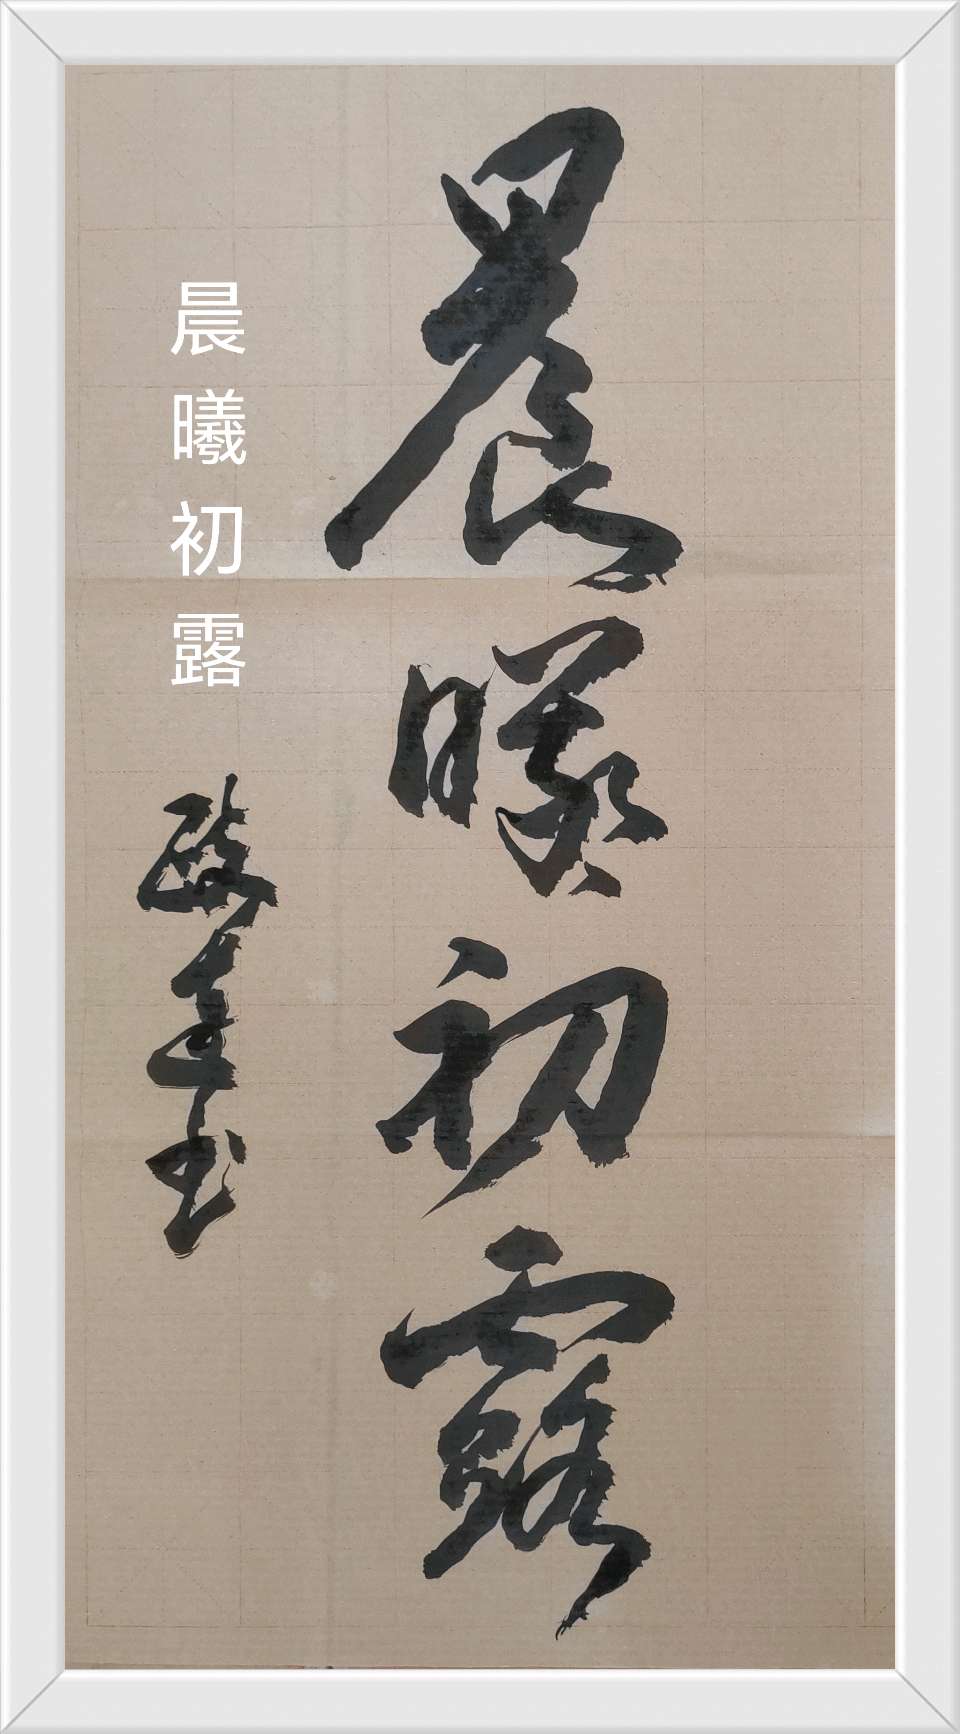 晨曦初露
晨曦初露
书